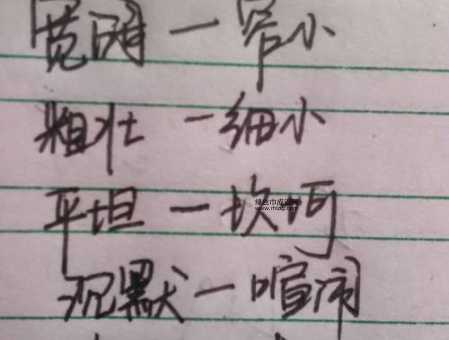 宽阔一窄小
粗壮一细小
平坦一坎坷
沉默一喧闹